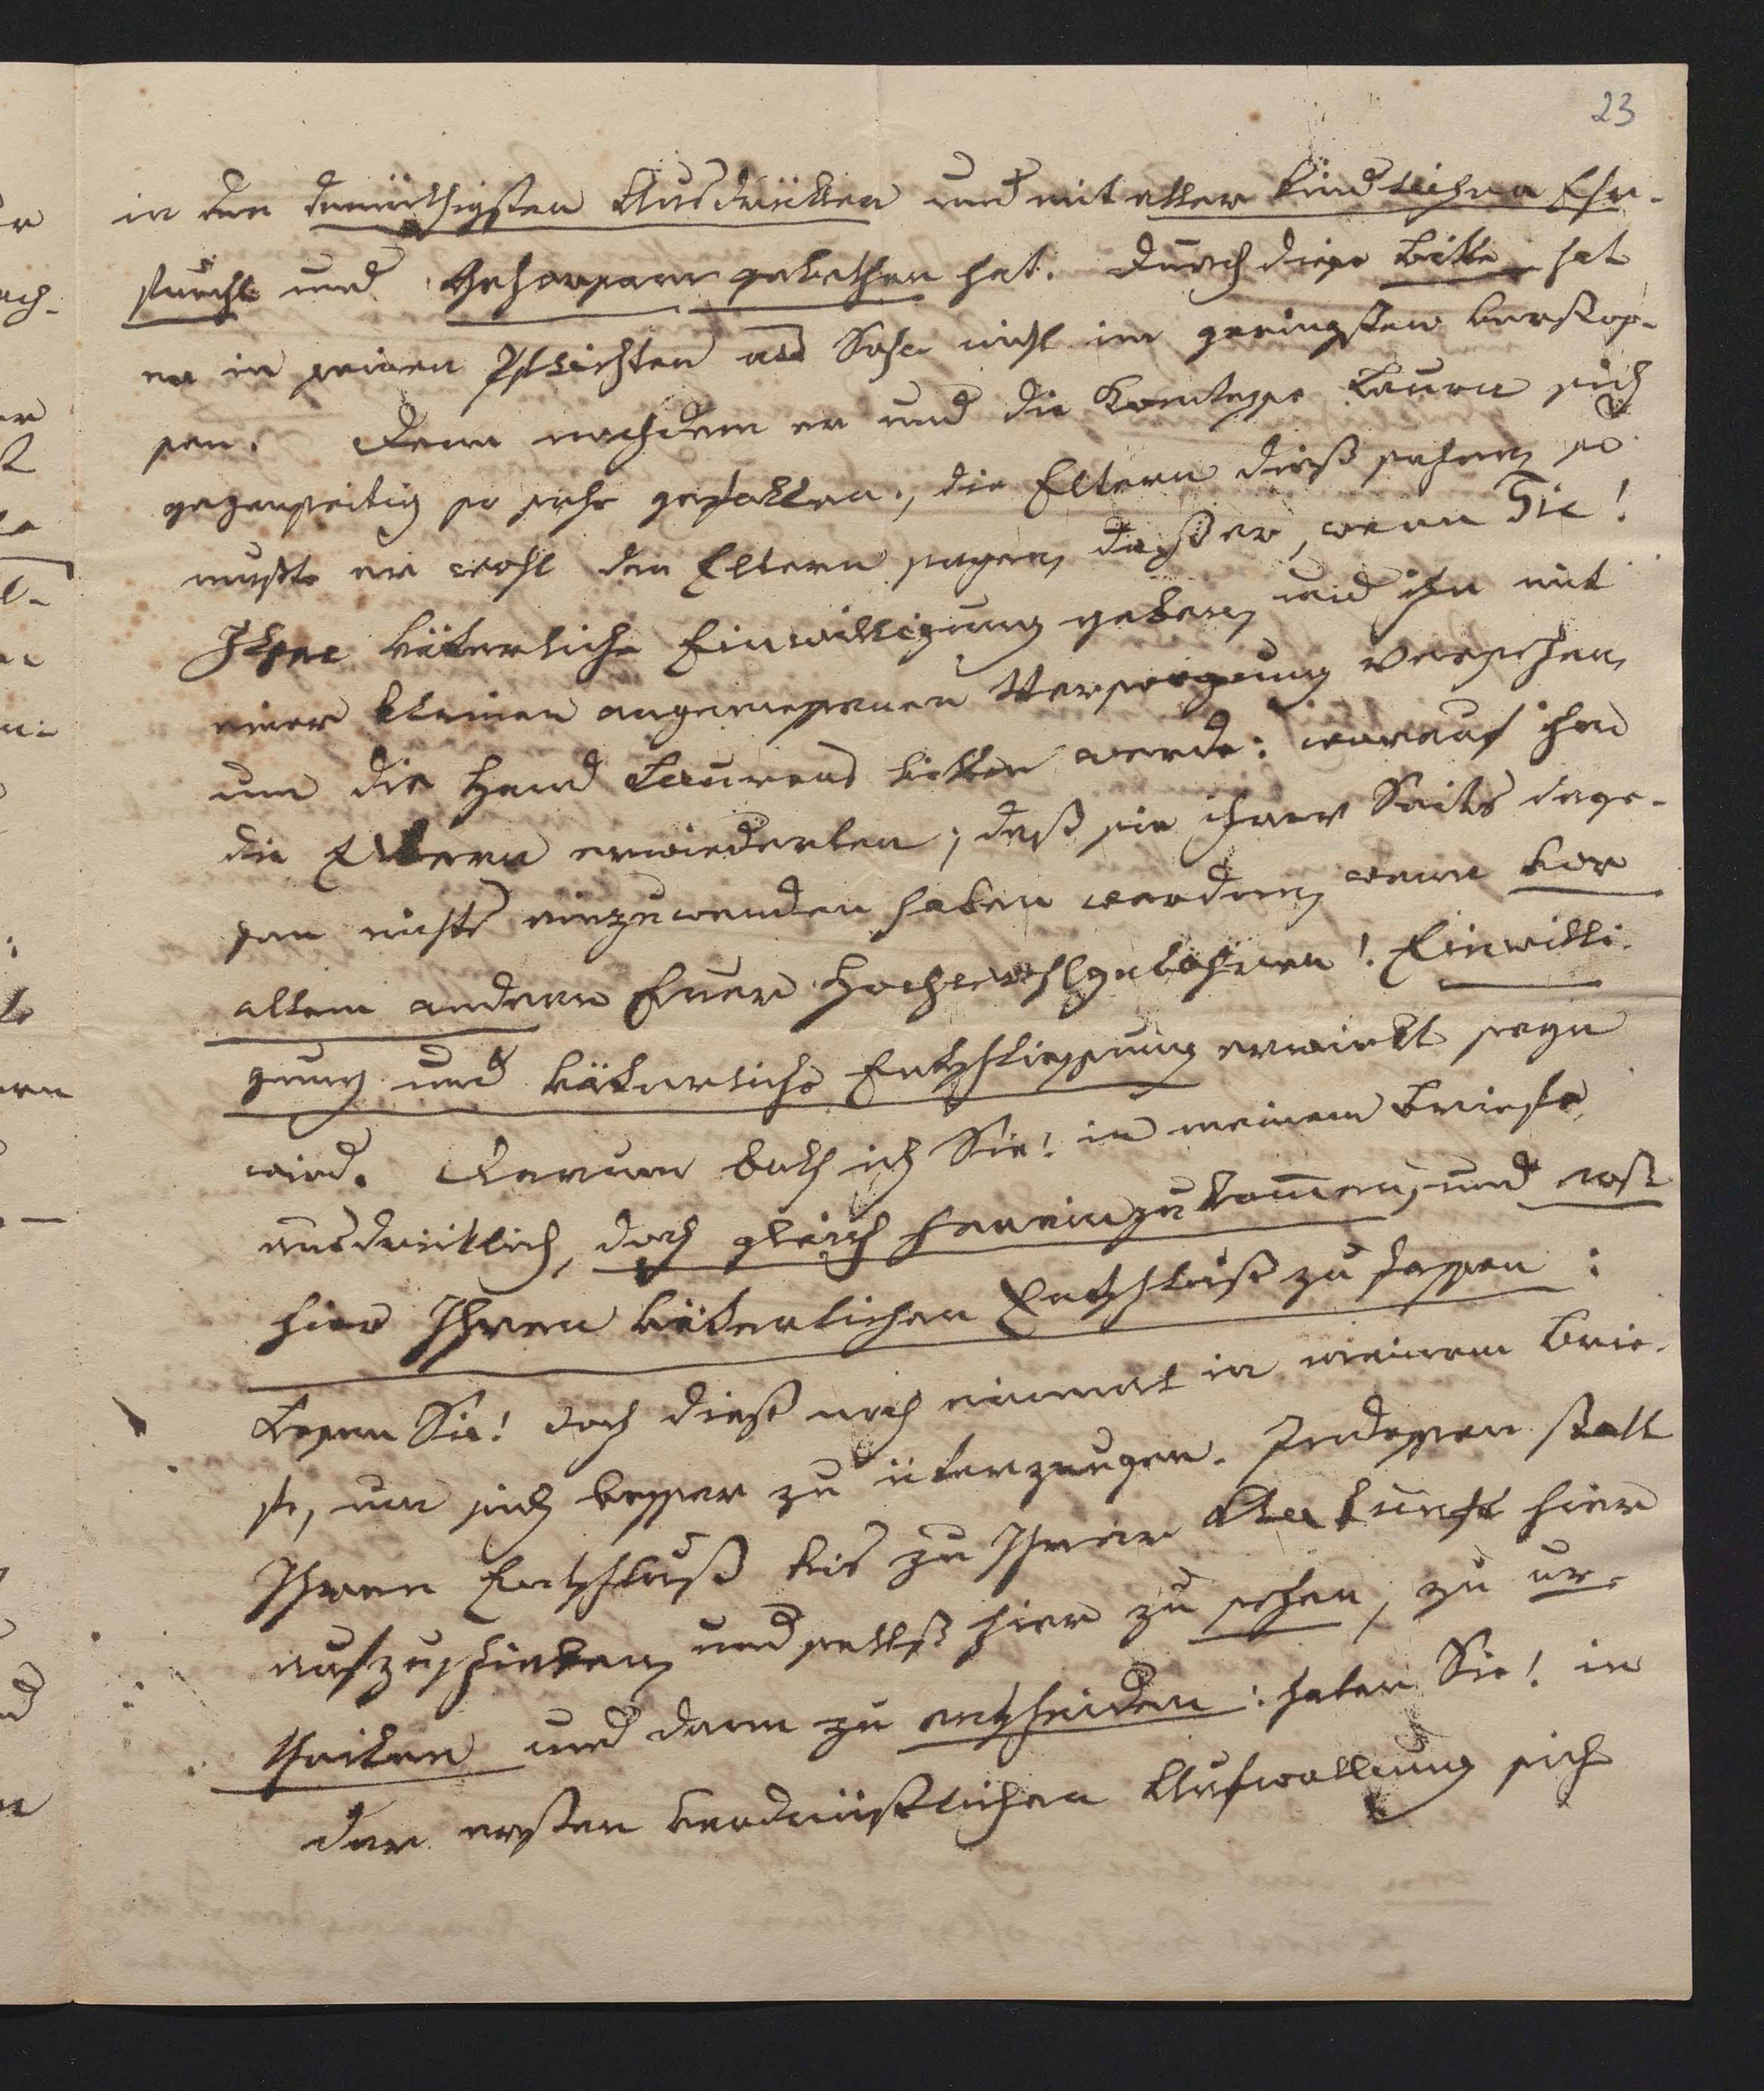 23
in den demüthigsten Ausdrücken und mit aller kindlichen Ehr-
furcht und Gehorsam gebethen hat. Durch diese Bitte hat
er in seinen Pflichten als Sohn nicht im geringsten verstos-
sen. Denn nachdem er und die Komtesse Laura sich
gegenseitig so sehr gefallen, die Eltern dieß sahen, so
mußte er wohl den Eltern sagen, daß er, wenn Sie!
Ihre väterliche Einwilligung geben, und ihn mit
einer kleinen angemessenen Versorgung versehen,
um die Hand Laurens bitten werde: worauf ihm
die Eltern erwiederten, daß sie ihrer Seits dage-
gen nichts einzuwenden haben werden, wenn vor
allem andern Euer Hochwohlgebohren! Einwilli-
gung und väterliche Entschliessung erwirkt seyn
wird. Darum bath ich Sie! in meinem Briefe
ausdrücklich, doch gleich hereinzukommen, und erst
hier Ihren väterlichen Entschluß zu fassen:
Lesen Sie! doch dieß noch einmal in meinem Brie-
fe, um sich besser zu überzeugen. Indessen statt
Ihren Entschluß bis zu Ihrer Ankunft hier
aufzuschieben, und selbst hier zu sehen, zu ur-
theilen und dann zu entscheiden: haben Sie! in
der ersten verdrüßlichen Aufwallung sich